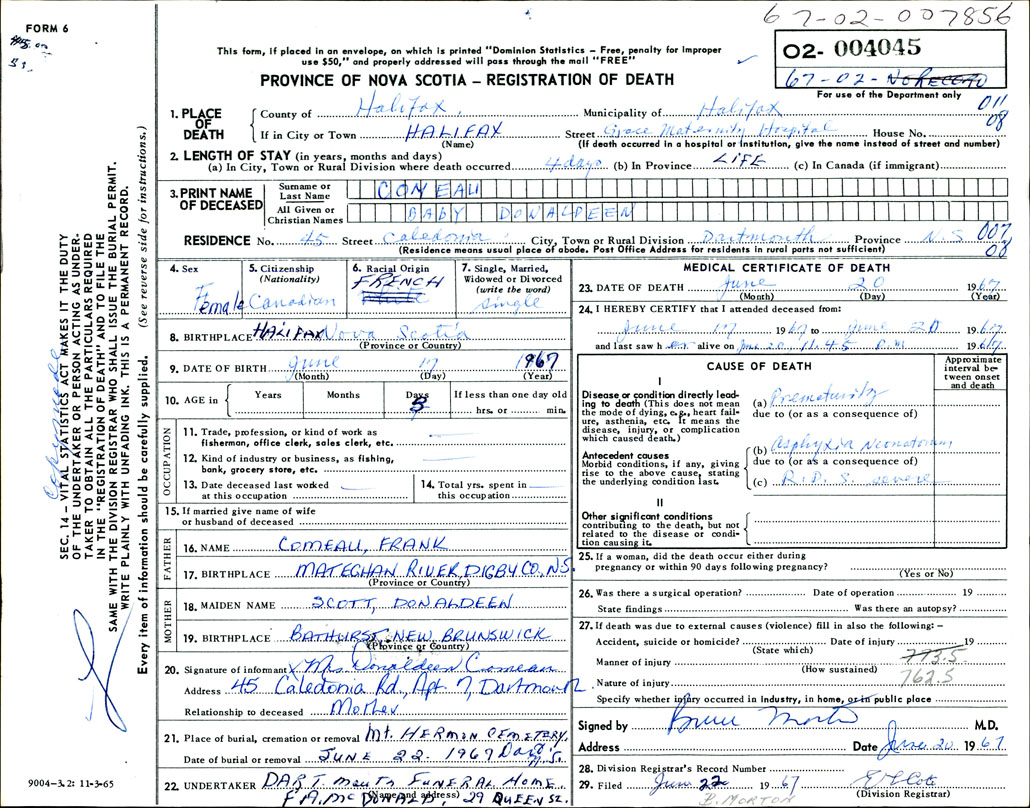 FORM 6
67-02-007856
This form, if placed in an envelope, on which is printed "Dominion Statistics – Free, penalty for improper
use $50," and properly addressed will pass through the mail "FREE"
02- 004045
PROVINCE OF NOVA SCOTIA – REGISTRATION OF DEATH
67-02-
For use of the Department only
011
08
1. PLACE OF DEATH
County of Halifax, Municipality of Halifax
If in City or Town HALIFAX Street Grace Maternity Hospital House No.
(Name) (If death occurred in a hospital or institution, give the name instead of street and number)
2. LENGTH OF STAY (in years, months and days)
(a) In City, Town or Rural Division where death occurred 4 days (b) In Province LIFE (c) In Canada (if immigrant)
3. PRINT NAME OF DECEASED
Surname or Last Name COMEAU
All Given or Christian Names BABY DONALDEEN
RESIDENCE No. 45 Street Caledonia City, Town or Rural Division Dartmouth Province N.S.
(Residence means usual place of abode. Post Office Address for residents in rural parts not sufficient)
007
08
4. Sex Female
5. Citizenship (Nationality) Canadian
6. Racial Origin FRENCH White
7. Single, Married, Widowed or Divorced (write the word) single
8. BIRTHPLACE HALIFAX Nova Scotia
(Province or Country)
9. DATE OF BIRTH June 17 1967
(Month) (Day) (Year)
10. AGE in Years Months Days 3 If less than one day old
hrs. or min.
OCCUPATION
11. Trade, profession, or kind of work as
fisherman, office clerk, sales clerk, etc.
12. Kind of industry or business, as fishing,
bank, grocery store, etc.
13. Date deceased last worked
at this occupation
14. Total yrs. spent in
this occupation
15. If married give name of wife
or husband of deceased
FATHER
16. NAME COMEAU, FRANK
17. BIRTHPLACE MATEGHAN RIVER, DIGBY CO, N.S.
(Province or Country)
MOTHER
18. MAIDEN NAME SCOTT, DONALDEEN
19. BIRTHPLACE BATHURST NEW BRUNSWICK
(Province or Country)
20. Signature of informant X Mrs Donaldeen Comeau
Address 45 Caledonia Rd., Apt 7, Dartmouth
Relationship to deceased Mother
21. Place of burial, cremation or removal Mt. HERMON CEMETERY,
Date of burial or removal JUNE 22. 1967 Dart N.S.
22. UNDERTAKER DARTMOUTH FUNERAL HOME
(Name and address)
F.A. MCDONALD, 29 QUEEN ST.
MEDICAL CERTIFICATE OF DEATH
23. DATE OF DEATH June 20 1967
(Month) (Day) (Year)
24. I HEREBY CERTIFY that I attended deceased from:
June 17 1967 to June 20 1967
and last saw h er alive on June 20 11.45 P.M 1967
CAUSE OF DEATH
Approximate interval between onset and death
I
Disease or condition directly leading to death (This does not mean the mode of dying, e.g., heart failure, asthenia, etc. It means the disease, injury, or complication which caused death.)
(a) Prematurity
due to (or as a consequence of)
Antecedent causes
Morbid conditions, if any, giving rise to the above cause, stating the underlying condition last.
(b) Asphyxia Neonatorum
due to (or as a consequence of)
(c) R.D.S. severe
II
Other significant conditions
contributing to the death, but not related to the disease or condition causing it.
25. If a woman, did the death occur either during
pregnancy or within 90 days following pregnancy?
(Yes or No)
26. Was there a surgical operation? Date of operation 19
State findings Was there an autopsy?
27. If death was due to external causes (violence) fill in also the following: –
Accident, suicide or homicide? Date of injury 19
(State which)
773.5
Manner of injury
(How sustained)
762.5
Nature of injury
Specify whether injury occurred in Industry, in home, or in public place
Signed by Bruce Morton M.D.
Address Date June 20 1967
28. Division Registrar's Record Number
29. Filed June 22 1967
(Division Registrar)
B. MORTON
SEC. 14 – VITAL STATISTICS ACT MAKES IT THE DUTY
OF THE UNDERTAKER OR PERSON ACTING AS UNDER-
TAKER TO OBTAIN ALL THE PARTICULARS REQUIRED
IN THE "REGISTRATION OF DEATH" AND TO FILE THE
SAME WITH THE DIVISION REGISTRAR WHO SHALL ISSUE THE BURIAL PERMIT.
WRITE PLAINLY WITH UNFADING INK. THIS IS A PERMANENT RECORD.
Every item of information should be carefully supplied. (See reverse side for instructions.)
9004-3.2: 11-3-65